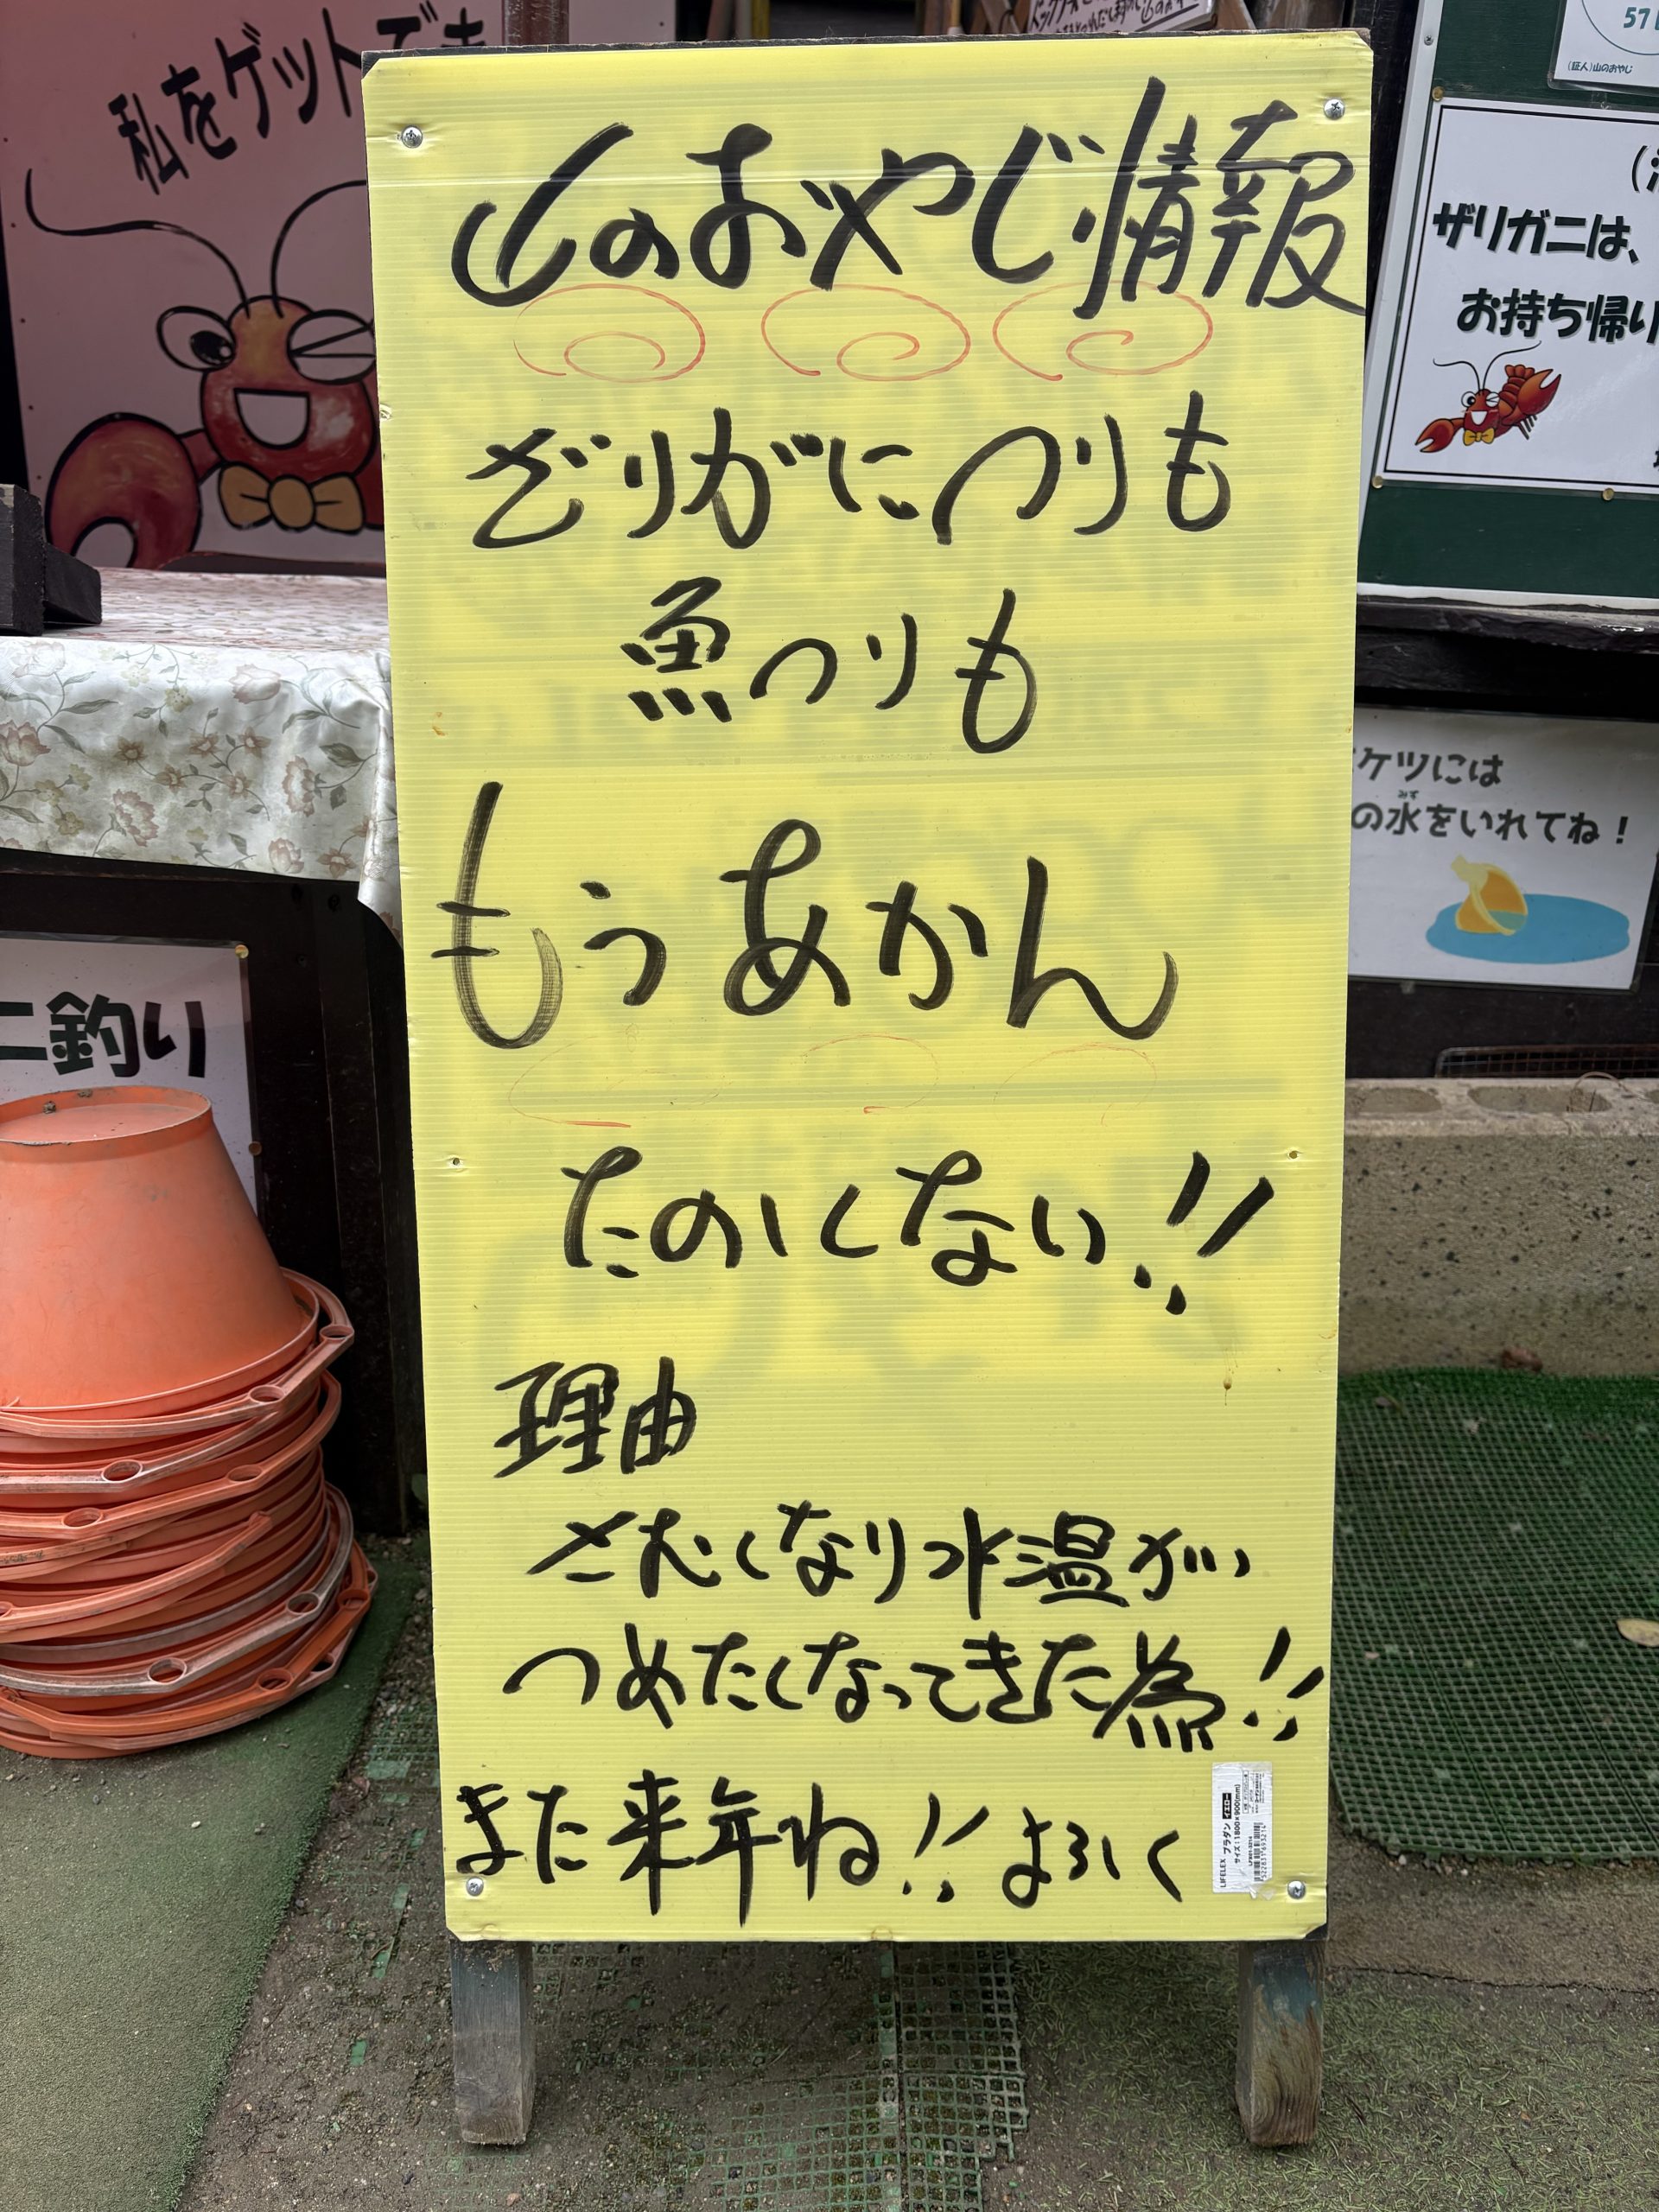 私をゲットでき
山のおやじ情報
ざりがにつりも
魚つりも
もうあかん
たのしくない!!
理由
さむくなり水温が
つめたくなってきた為!!
また来年ね!! よろしく
LIFELEX プラダン イエロー
サイズ:1800×900(mm)
ニ釣り
57
(証人)山のおやじ
ザリガニは、
お持ち帰り
ケツには
の水をいれてね!
みず